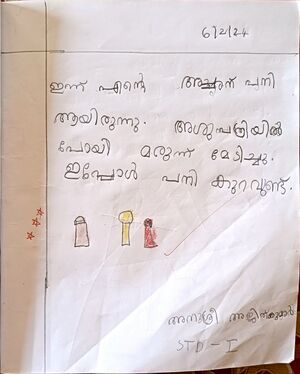 6/2/24
ഇന്ന് എന്റെ അച്ഛന് പനി
ആയിരുന്നു. അശുപത്രിയിൽ
പോയി മരുന്ന് മേടിച്ചു.
ഇപ്പോൾ പനി കുറവുണ്ട്.
അനുശ്രീ അജിത്കുമാർ
STD - I